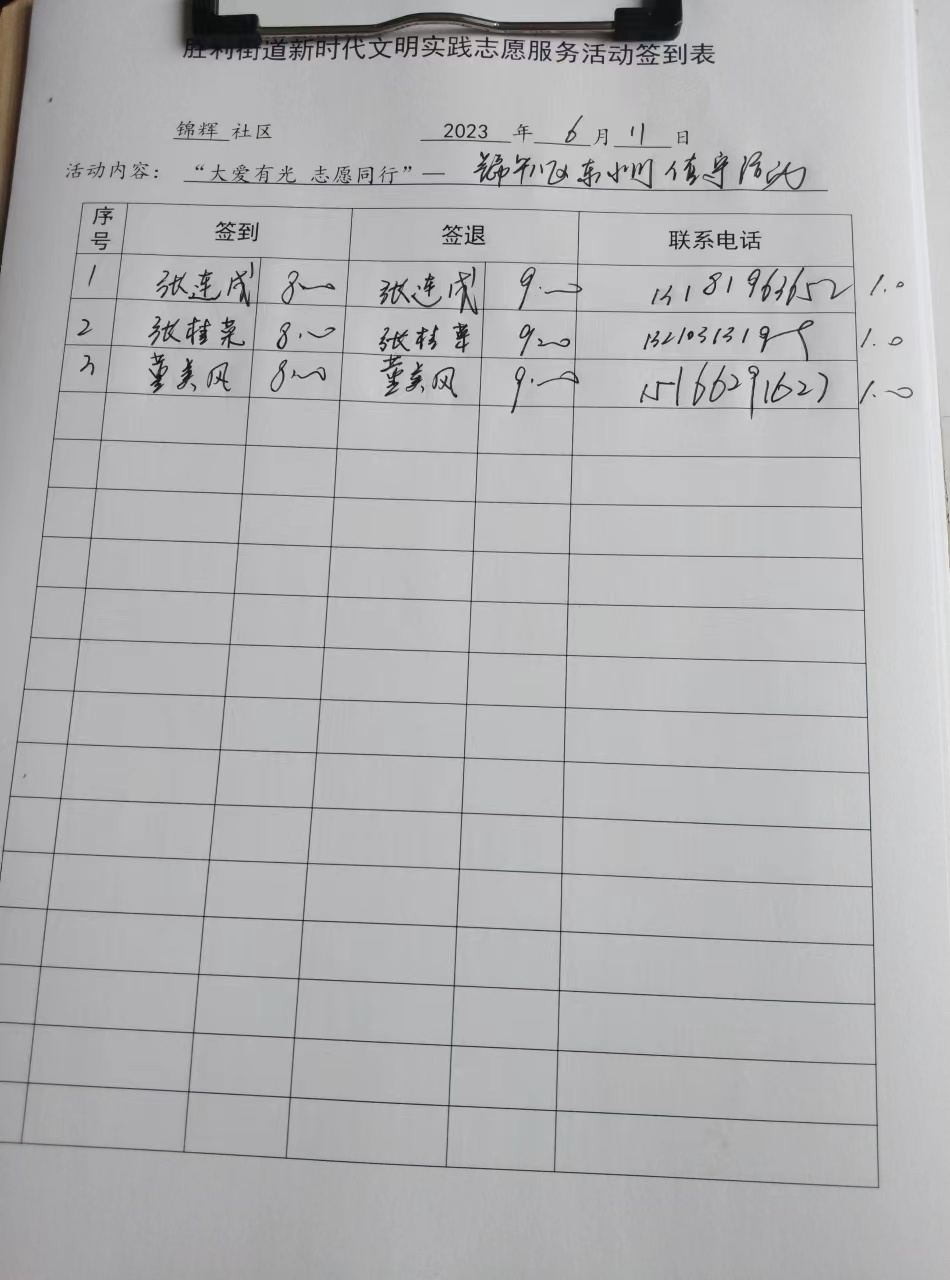 胜利街道新时代文明实践志愿服务活动签到表
锦辉 社区 2023 年 6 月 11 日
活动内容： “大爱有光 志愿同行”— 值守活动
序号 签到 签退 联系电话
1 张连成 8:00 张连成 9:00 13181963652 1.0
2 张桂菜 8:00 张桂草 9:00 1.0
3 董美风 8:00 董美风 9:00 15166291627 1.0